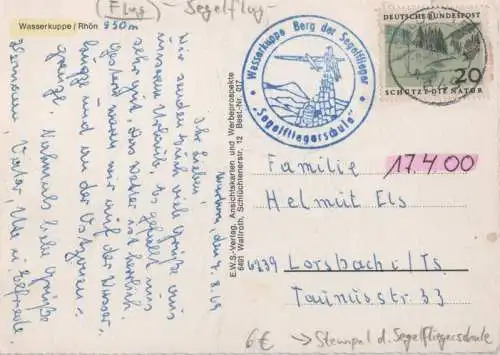 (Flug) - Segelflug -
Wasserkuppe / Rhön 950m
den 7.8.69
Ihr Lieben!
Wir senden Euch viele Grüße aus
unserem Urlaub. Es gefällt uns
sehr gut. Das Wetter ist herrlich.
Gestern waren wir auf der Wasser-
kuppe und an der Ostzonen-
grenze. Nochmals liebe Grüße
Hermann, Vater, Ute u. Elfriede
E.W.S.-Verlag, Ansichtskarten und Werbeprospekte
6401 Wallroth, Schlüchternerstr. 12 Best.-Nr. 017
Wasserkuppe Berg der Segelflieger
"Segelfliegerschule"
DEUTSCHE BUNDESPOST
20
SCHÜTZT DIE NATUR
17.4.00
Familie
Helmut Els
6239 Lorsbach/Ts
Taunusstr. 33
6€ → Stempel d. Segelfliegerschule